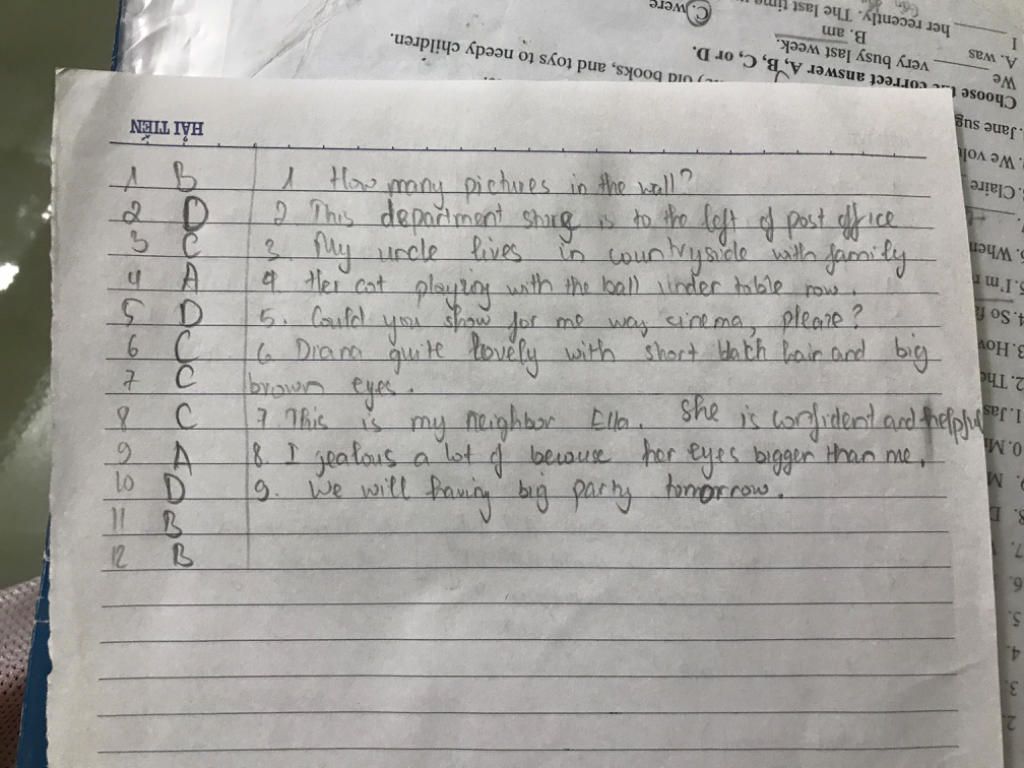 HẢI TIẾN
1 B
2 D
3 C
4 A
5 D
6 C
7 C
8 C
9 A
10 D
11 B
12 B
1 How many pictures in the wall?
2 This department store is to the left of post office
3. My uncle lives in countryside with family
4. Her cat playing with the ball under table now.
5. Could you show for me way cinema, please?
6 Diana quite lovely with short hair and big
brown eyes.
7 This is my neighbor Ella. she is confident and helpful
8. I jealous a lot of because her eyes bigger than me.
9. We will having big party tomorrow.
old books, and toys to needy children.
Choose correct answer A, B, C, or D.
We very busy last week.
A. was B. am C. were
I her recently. The last time
Jane sug
We volu
Claire
When
I'm
So
How
The
Jas